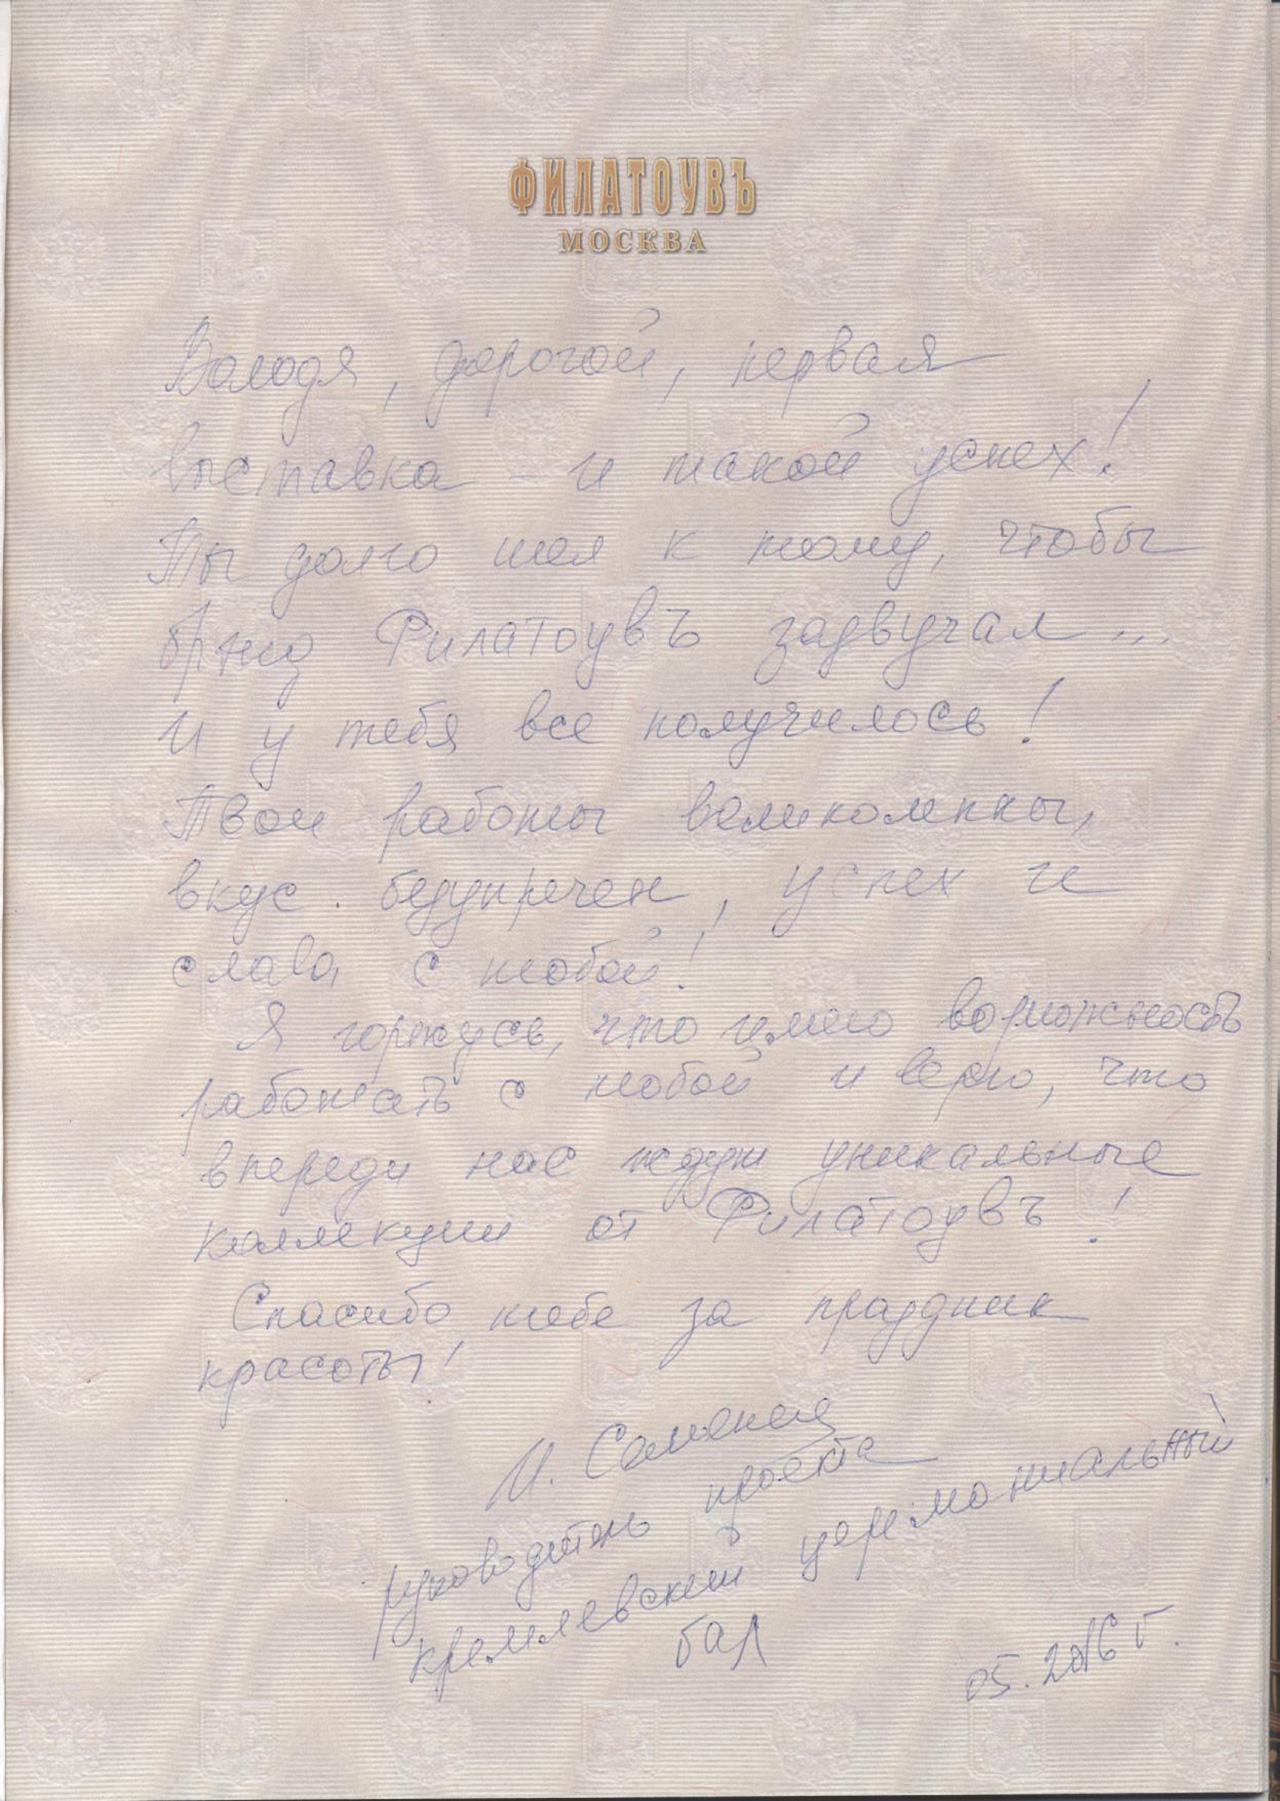 ФИЛАТОУВЪ
МОСКВА
Володя, дорогой, первая
выставка - и такой успех!
Ты долго шел к тому, чтобы
брэнд ФилатоувЪ задвучал...
И у тебя все получилось!
Твои работы великолепны,
вкус безупречен, успех и
слава с тобой!
Я горжусь, что имею возможность
работать с тобой и верю, что
впереди нас ждут уникальные
коллекции от ФилатоувЪ!
Спасибо тебе за праздник
красоты!
И.
руководитель проекта
кремлевский церемониальный
бал
05.2016 г.